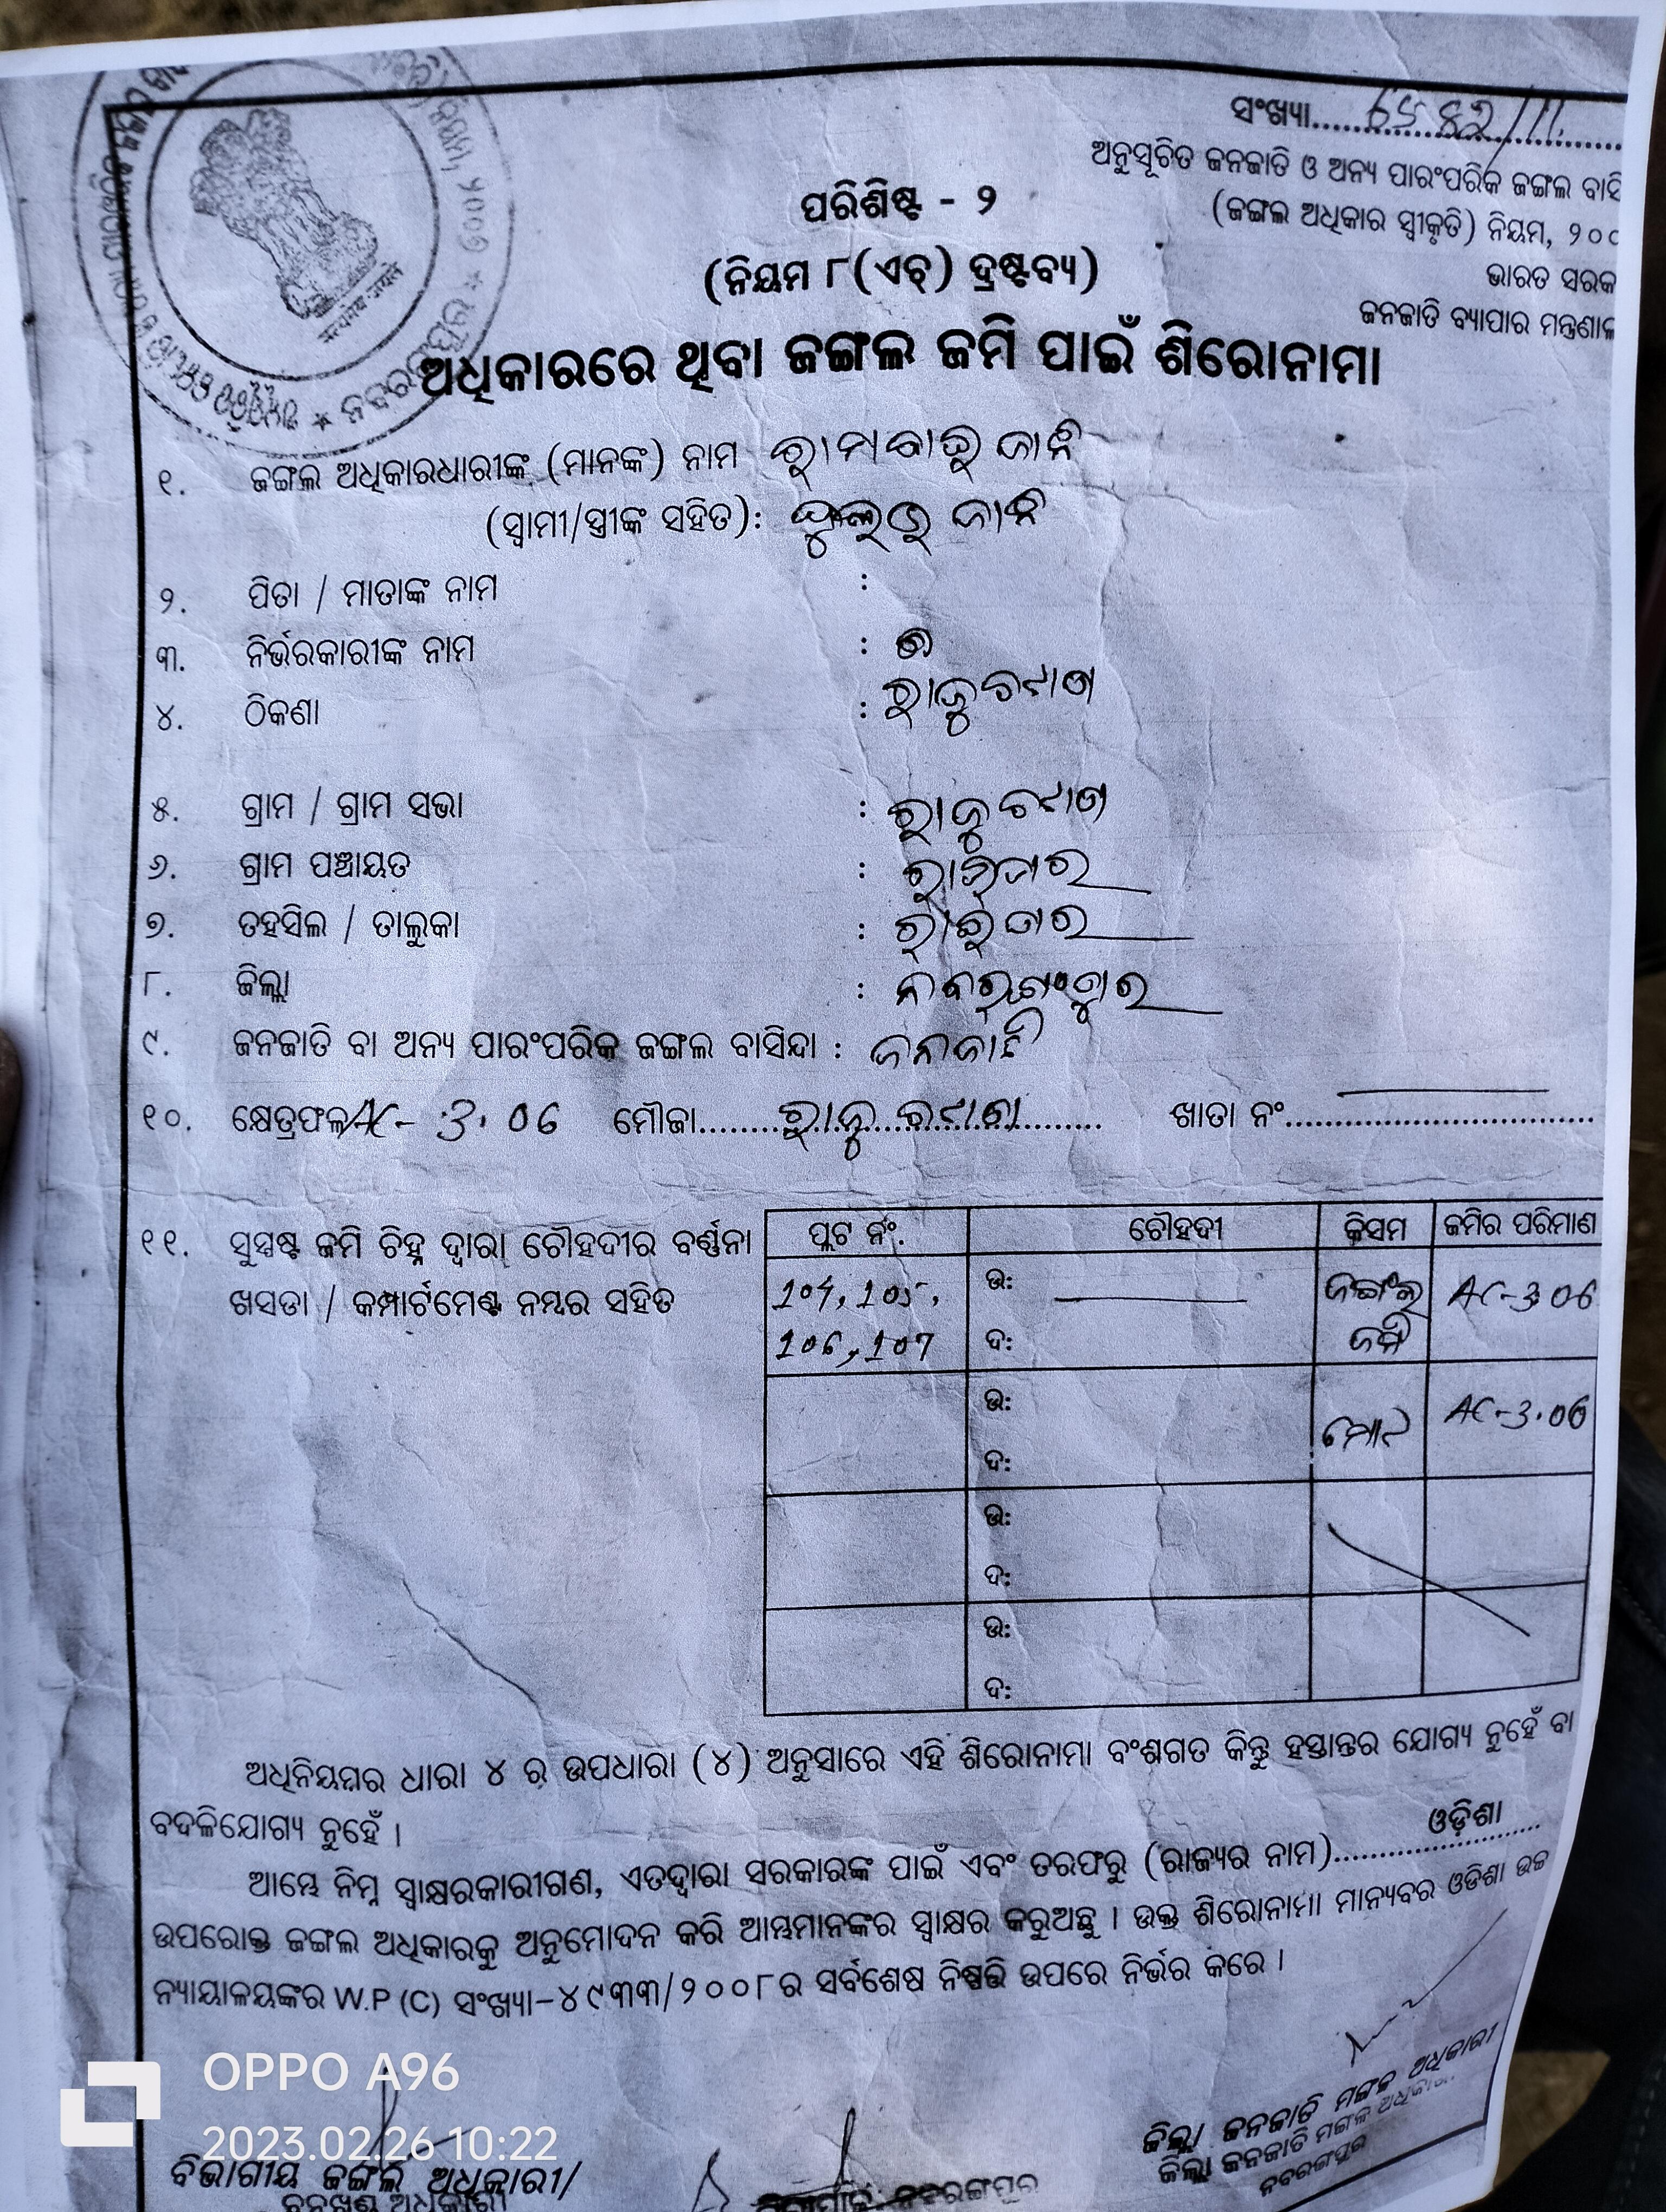 ସଂଖ୍ୟା
ଅନୁସୂଚିତ ଜନଜାତି ଓ ଅନ୍ୟ ପାରଂପରିକ ଜଙ୍ଗଲ ବାସି
(ଜଙ୍ଗଲ ଅଧିକାର ସ୍ୱୀକୃତି) ନିୟମ, ୨୦୦
ଭାରତ ସରକା
ଜନଜାତି ବ୍ୟାପାର ମନ୍ତ୍ରଣାଳ
ପରିଶିଷ୍ଟ - ୨
(ନିୟମ ୮(ଏଚ୍) ଦ୍ରଷ୍ଟବ୍ୟ)
ଅଧିକାରରେ ଥିବା ଜଙ୍ଗଲ ଜମି ପାଇଁ ଶିରୋନାମା
୧. ଜଙ୍ଗଲ ଅଧିକାରଧାରୀଙ୍କ (ମାନଙ୍କ) ନାମ ଜାନି
(ସ୍ୱାମୀ/ସ୍ତ୍ରୀଙ୍କ ସହିତ): ଜାନି
୨. ପିତା / ମାତାଙ୍କ ନାମ :
୩. ନିର୍ଭରକାରୀଙ୍କ ନାମ :
୪. ଠିକଣା :
୫. ଗ୍ରାମ / ଗ୍ରାମ ସଭା :
୬. ଗ୍ରାମ ପଞ୍ଚାୟତ : ରାଇଘର
୭. ତହସିଲ / ତାଲୁକା : ରାଇଘର
୮. ଜିଲ୍ଲା : ନବରଂଗପୁର
୯. ଜନଜାତି ବା ଅନ୍ୟ ପାରଂପରିକ ଜଙ୍ଗଲ ବାସିନ୍ଦା : ଜନଜାତି
୧୦. କ୍ଷେତ୍ରଫଳ AC- 3.06 ମୌଜା.......... ଖାତା ନଂ..........
୧୧. ସୁସ୍ପଷ୍ଟ ଜମି ଚିହ୍ନ ଦ୍ୱାରା ଚୌହଦୀର ବର୍ଣ୍ଣନା
ଖସଡା / କମ୍ପାର୍ଟମେଣ୍ଟ ନମ୍ବର ସହିତ
ପ୍ଲଟ ନଂ. ଚୌହଦୀ କିସମ ଜମିର ପରିମାଣ
104, 105, ଉ: ଜଙ୍ଗଲ AC-3.06
106, 107 ଦ: ଜମି
ଉ: ମୋଟ AC-3.06
ଦ:
ଉ:
ଦ:
ଉ:
ଦ:
ଅଧିନିୟମର ଧାରା ୪ ର ଉପଧାରା (୪) ଅନୁସାରେ ଏହି ଶିରୋନାମା ବଂଶଗତ କିନ୍ତୁ ହସ୍ତାନ୍ତର ଯୋଗ୍ୟ ନୁହେଁ ବା
ବଦଳିଯୋଗ୍ୟ ନୁହେଁ ।
ଆମ୍ଭେ ନିମ୍ନ ସ୍ୱାକ୍ଷରକାରୀଗଣ, ଏତଦ୍ୱାରା ସରକାରଙ୍କ ପାଇଁ ଏବଂ ତରଫରୁ (ରାଜ୍ୟର ନାମ)..........ଓଡ଼ିଶା
ଉପରୋକ୍ତ ଜଙ୍ଗଲ ଅଧିକାରକୁ ଅନୁମୋଦନ କରି ଆମ୍ଭମାନଙ୍କର ସ୍ୱାକ୍ଷର କରୁଅଛୁ । ଉକ୍ତ ଶିରୋନାମା ମାନ୍ୟବର ଓଡିଶା ଉଚ୍ଚ
ନ୍ୟାୟାଳୟଙ୍କର W.P (C) ସଂଖ୍ୟା-୪୯୩୩/୨୦୦୮ର ସର୍ବଶେଷ ନିଷ୍ପତ୍ତି ଉପରେ ନିର୍ଭର କରେ ।
ଜିଲ୍ଲା ଜନଜାତି ମଙ୍ଗଳ ଅଧିକାରୀ
ଜିଲ୍ଲା ଜନଜାତି ମଙ୍ଗଳ ଅଧିକାରୀ
ନବରଙ୍ଗପୁର
OPPO A96
2023.02.26 10:22
ବିଭାଗୀୟ ଜଙ୍ଗଲ ଅଧିକାରୀ/
ବନଖଣ୍ଡ ଅଧିକାରୀ
ନବରଙ୍ଗପୁର